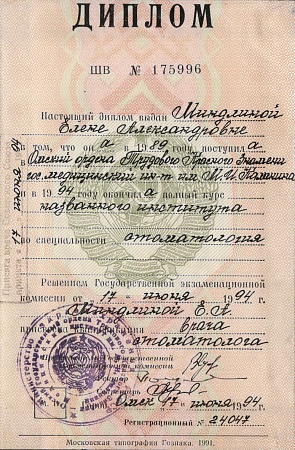 ДИПЛОМ
ШВ № 175996
Настоящий диплом выдан Миндлиной
Елене Александровне
в том, что она в 1989 году поступила
Омский ордена Трудового Красного Знамени
гос. медицинский ин-т им. М.И. Калинина
и в 1994 окончила полный курс
названного института
по специальности стоматология
Решением Государственной экзаменационной
комиссии от 17 июня 1994 г.
Миндлиной Е.А.
присвоена квалификация врача
стоматолога
Председатель Государственной
экзаменационной комиссии
Ректор
Секретарь
Омск 17 июня 1994 г.
Регистрационный № 24047
Московская типография Гознака. 1991.
17 июня 94